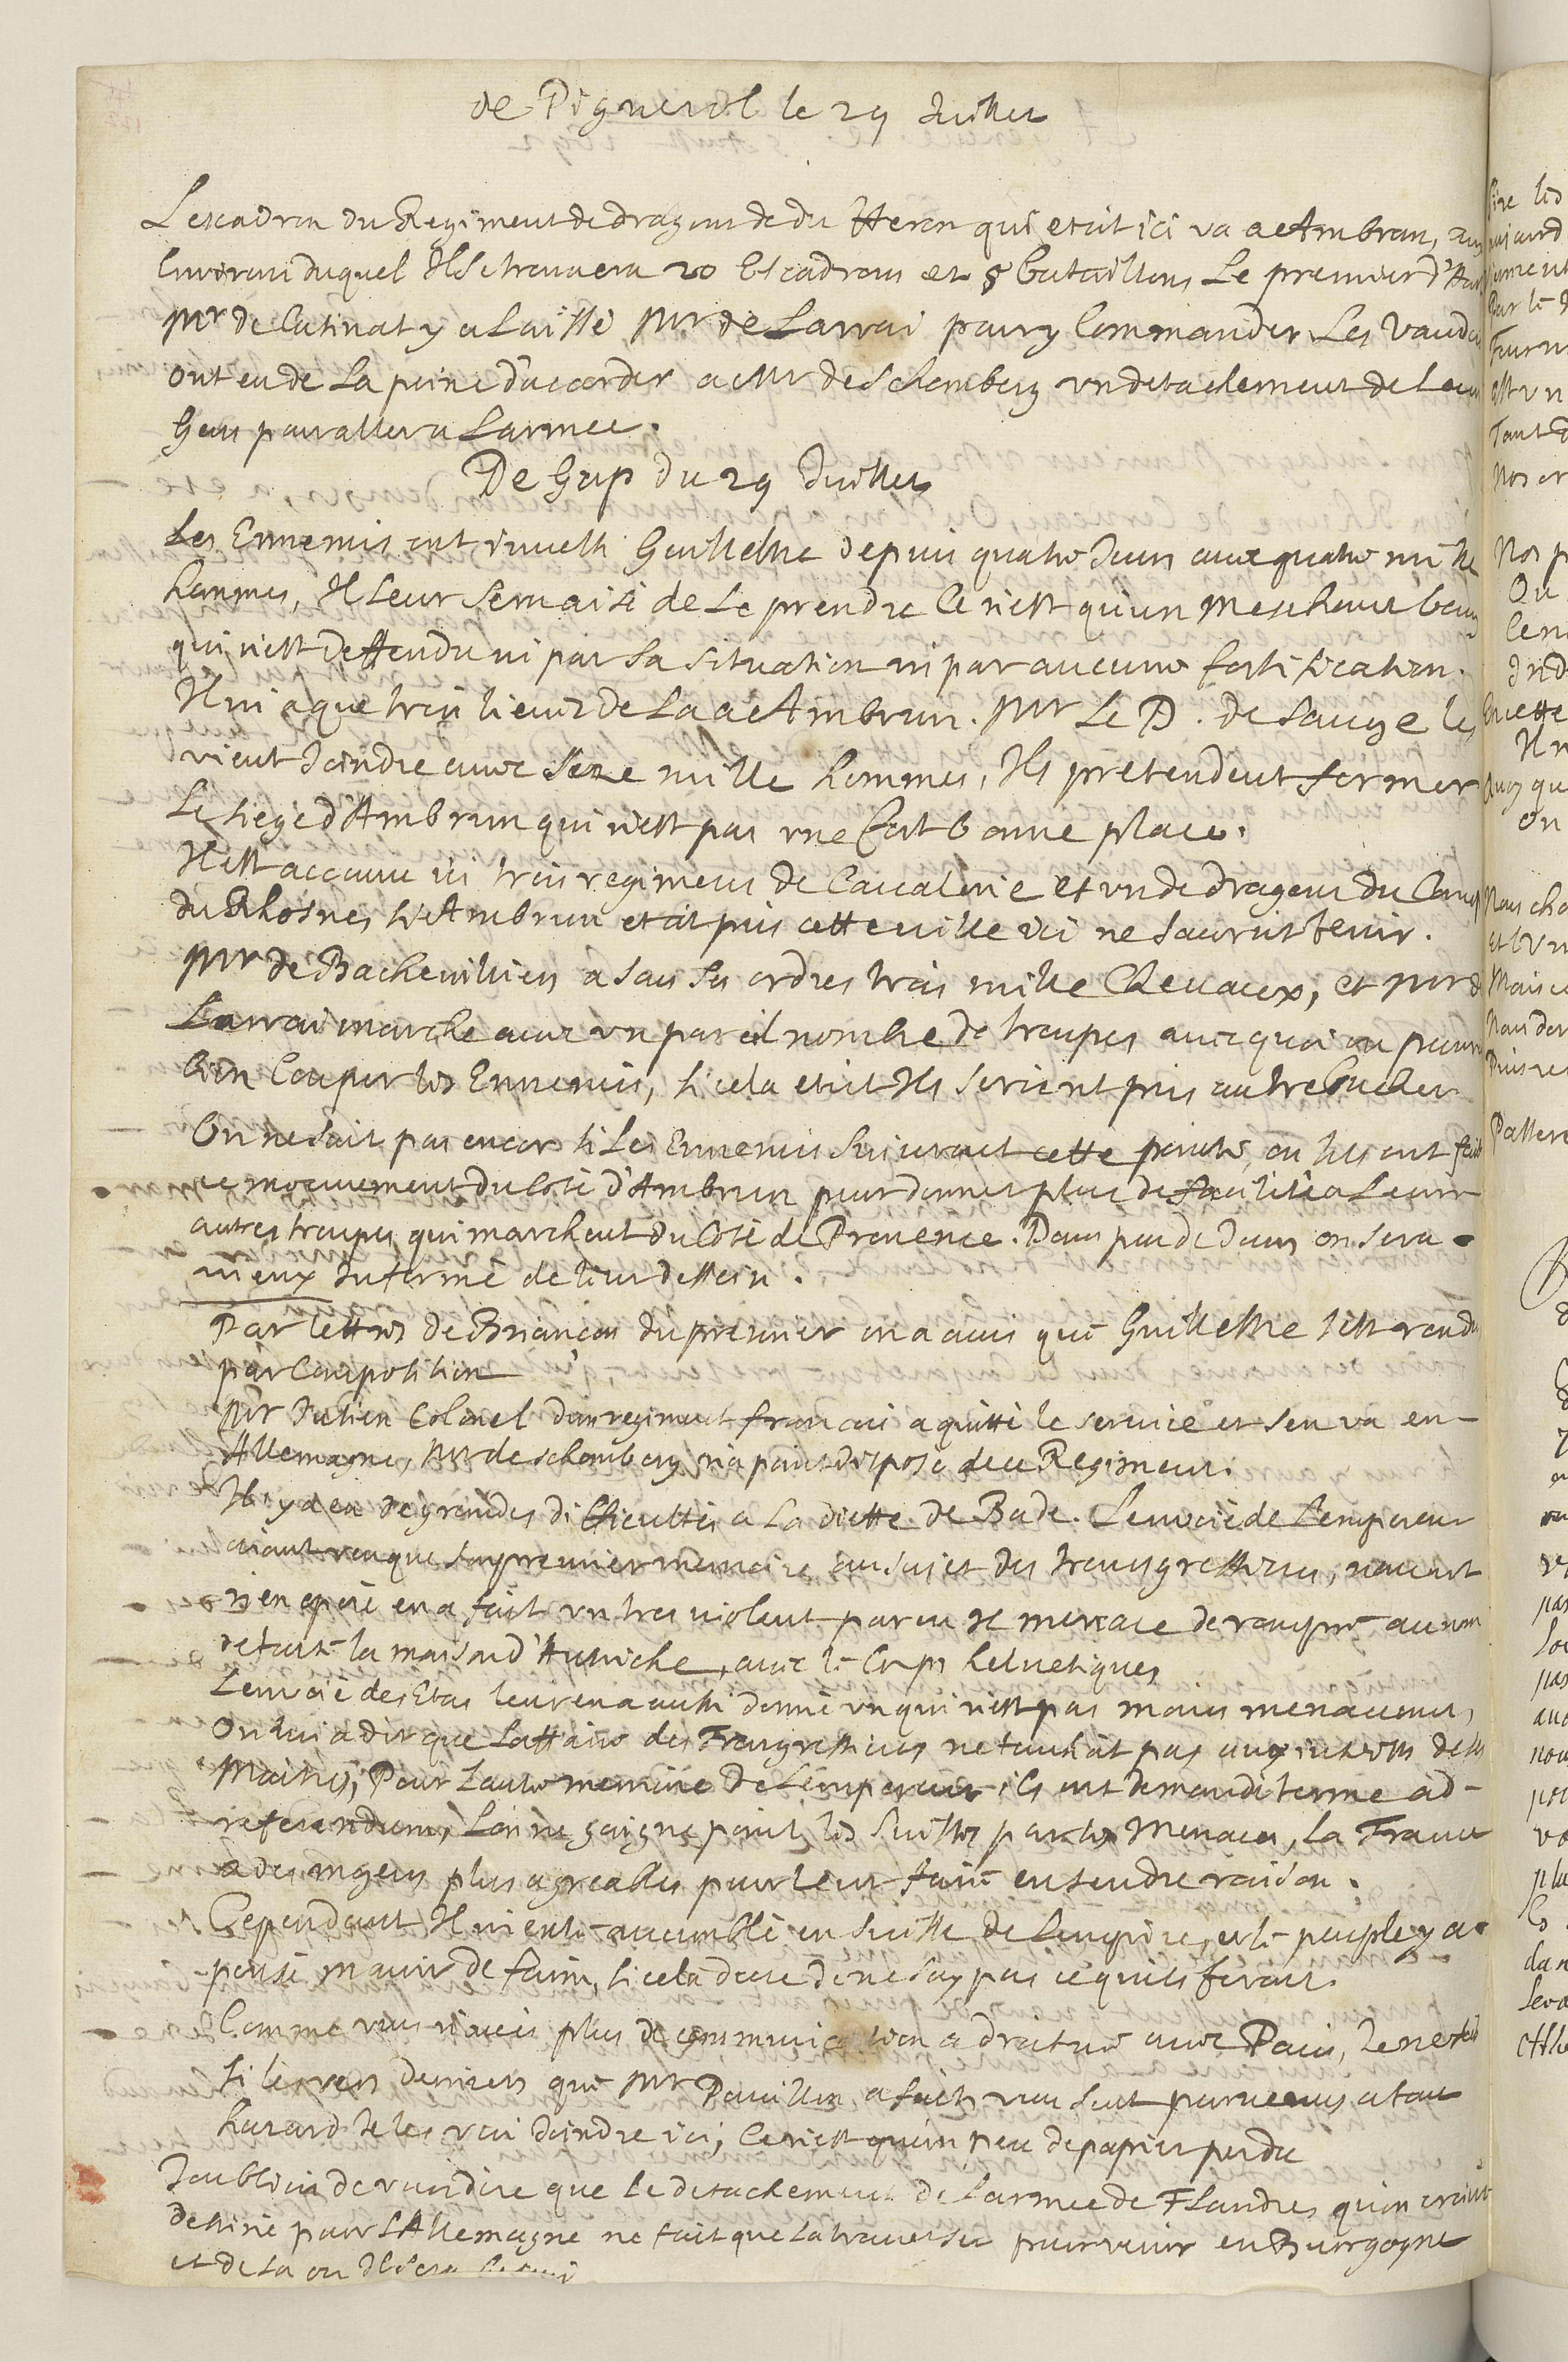 de Pignerol le 29 Juillet
Lescadron du Regiment de dragons de du Heron qui etoit ici va a Ambrun, aux
Environs duquel Il se trouvera 20 Escadrons et 8 bataillons Le premier d'
Mr de Catinat y a Laissé Mr de Larrai pour y Commander Les Vaudois
ont eu de la peine d'accorder a Mr de Schomberg un detachement de Leurs
Gens pour aller a Larmée.
De Gap du 29 Juillet
Les Ennemis ont investi Guillestre depuis quatre Jours avec quatre mille
hommes, Il Leur sera aisé de Le prendre Ce n'est qu'un meschant bourg
qui n'est deffendu ni par sa situation ni par aucune fortification.
Il ni a que trois lieues de La a Ambrun. Mr Le D. de Savoye les
vient Joindre avec Seze mille hommes, Ils pretendent former
Le siege d'Ambrun qui n'est pas une fort bonne place.
Il est accouru ici trois regimens de Cavalerie et un de dragons du Camp
du Rhosne, si Ambrun etoit pris cette ville ici ne sauroit tenir.
Mr de Bachevilliers a sous ses ordres trois mille Chevaux, et Mr de
Larrai marche avec un pareil nombre de troupes avec quoi on pourra
bien Couper les Ennemis, si cela etoit Ils seroient pris au trebucher
On ne sait pas encore si Les Ennemis suivront cette pointe, ou sils ont fait
ce mouvement du Coté d'Ambrun pour donner plus de facilité a Leurs
autres troupes qui marchent du Coté de Provence. Dans peu de Jours on sera
mieux Informé de leur dessein.
Par lettres de Briançon du premier on a avis que Guillestre s'est rendu
par Composition
Mr Julien Colonel d'un regiment francois a quitté le service et s'en va en
Allemagne, Mr de Schomberg n'a point disposé de ce Regiment.
Il y a eu de grandes difficultés a La diette de Bade. L'envoié de L'empereur
aiant veu que son premier memoire au sujet des transgressions, n'avoit
rien operé en a fait un tres violent par ou Il menace de rompre au nom
de toute la maison d'Autriche, avec le Corps helvetiques
L'envoié des Etas leur en a aussi donné un qui n'est pas moins menacant,
On lui a dit que L'affaire des Transgressions ne touchoit pas aux interests de ses
Maitres, Pour L'autre memoire de L'empereur ils ont demandé terme ad
referendum, L'on ne gaigne point les Suisses par les Menaces, La France
a des moyens plus agreables pour leur faire entendre raison.
Cependant Il ni entre aucun blé en Suisse de L'empire, et le peuple y a
pensé mourir de faim, si cela dure Je ne say pas ce quils feront.
Comme vous n'avés plus de communication a droiture avec Paris, Je ne sai
si les vers derniers que Mr Pavillon a faits vous sont parvenus a tout
hazard Je les vai Joindre ici, Ce n'est qu'un peu de papier perdu
J'oubliois de vous dire que le detachement de L'armée de Flandres qu'on croioit
destiné pour L'Allemagne ne fait que La traverser pour venir en Bourgogne
et de La ou Il sera